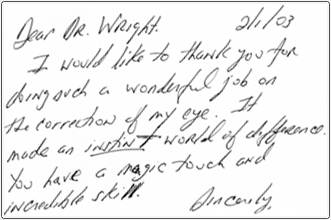 Dear Dr. Wright. 2/1/03
I would like to thank you for
doing such a wonderful job on
the correction of my eye. It
made an instint world of difference.
You have a magic touch and
incredible skill.
Sincerely,